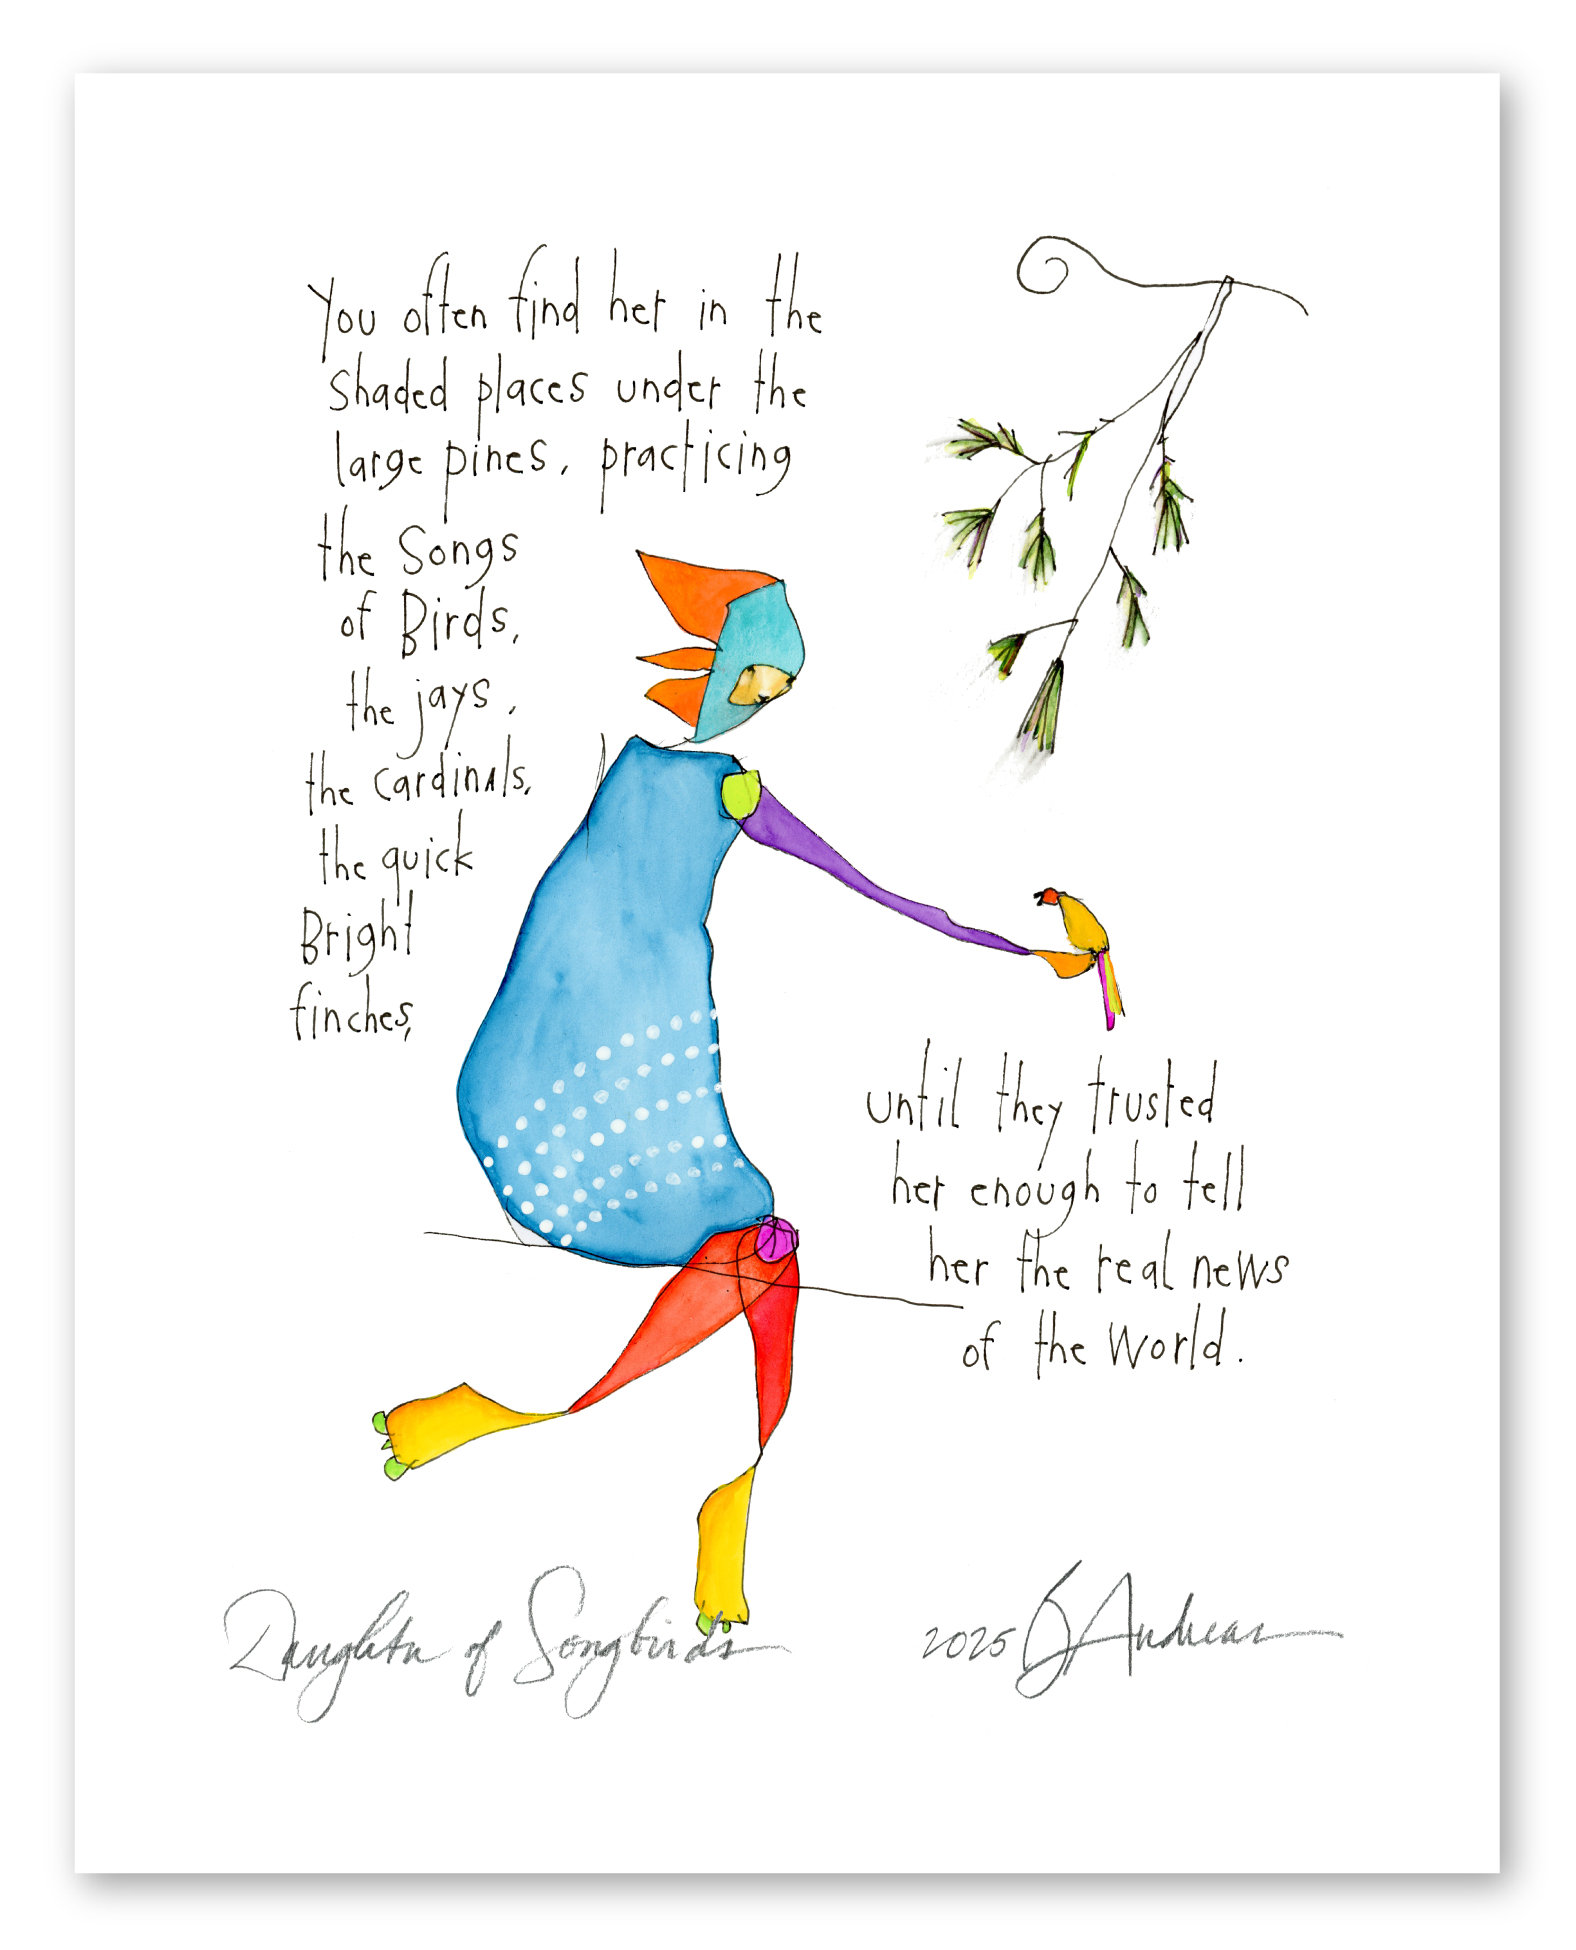 You often find her in the
Shaded places under the
large pines, practicing
the Songs
of Birds,
the jays,
the cardinals,
the quick
Bright
finches,
until they trusted
her enough to tell
her the real news
of the World.
Daughter of Songbirds
2025 S Andreas